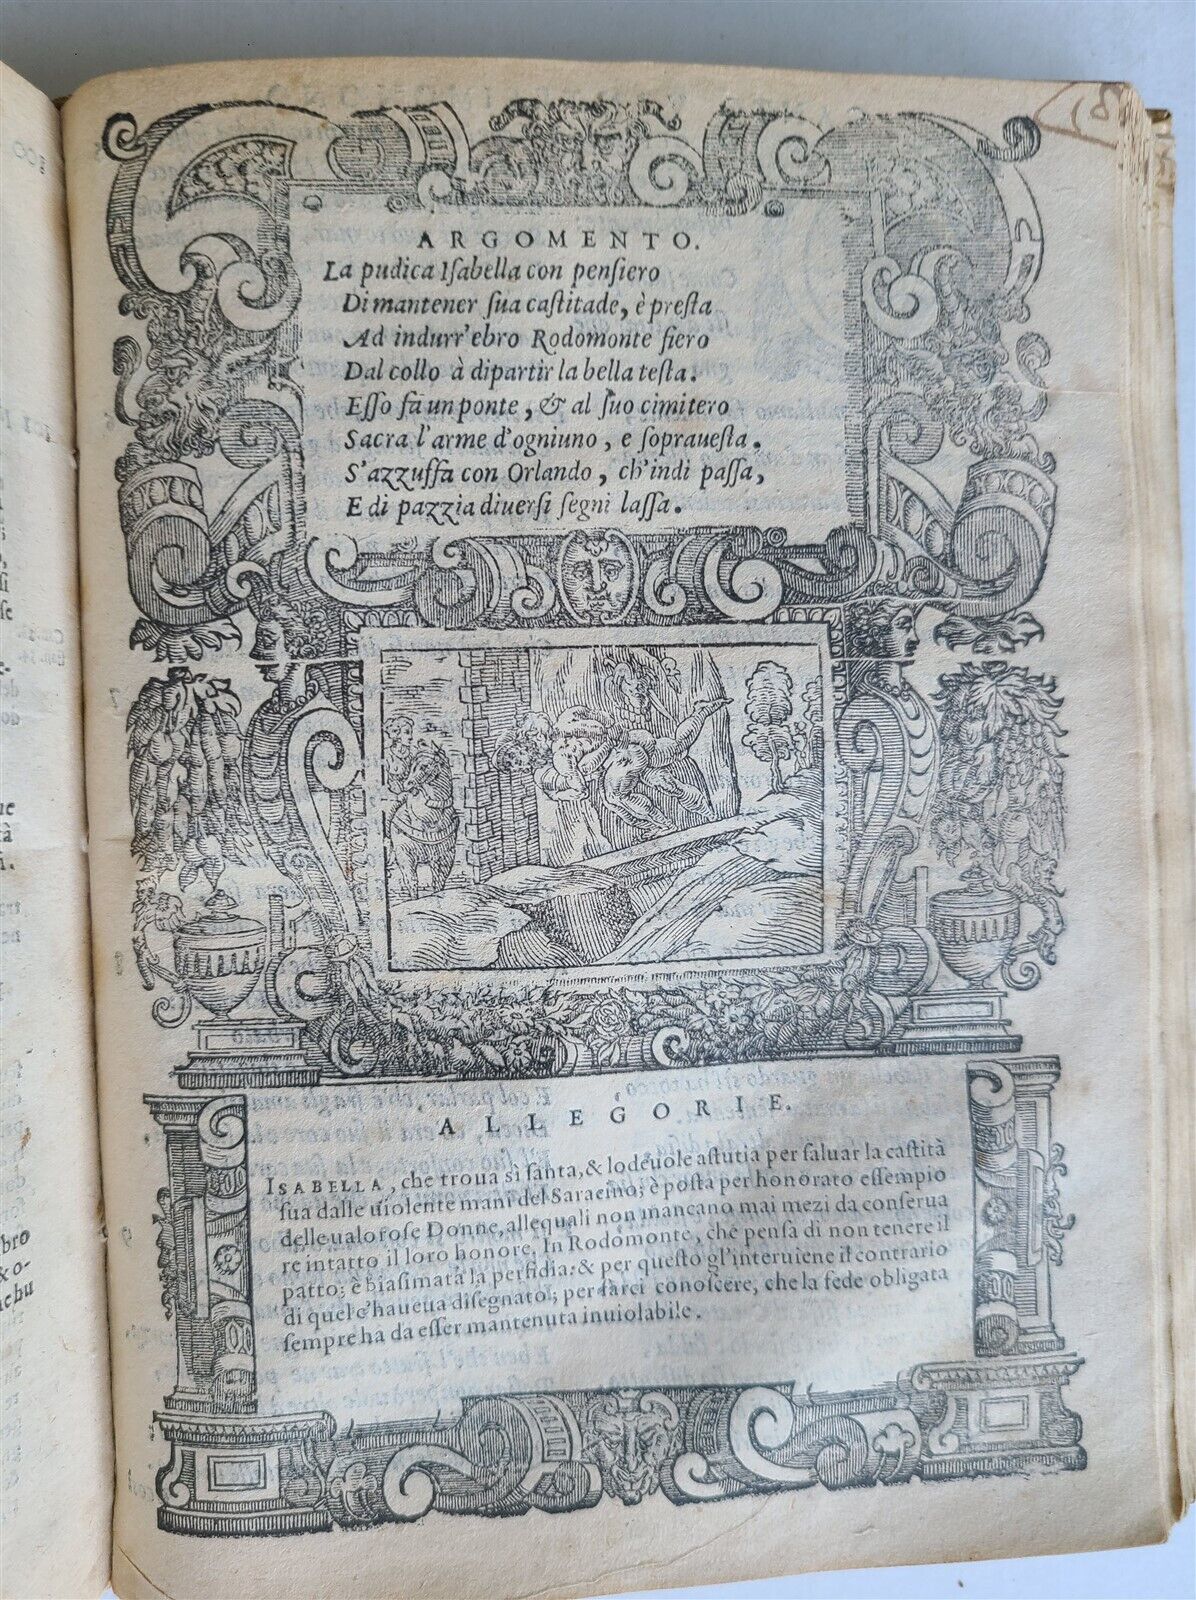 ARGOMENTO.
La pudica Iſabella con penſiero
Di mantener ſua caſtitade, è preſta
Ad indurr'ebro Rodomonte fiero
Dal collo à dipartir la bella teſta.
Eſſo fà un ponte, & al ſuo cimitero
Sacra l'arme d'ogniuno, e ſoprauesta.
S'azzuffa con Orlando, ch'indi paſſa,
E di pazzia diuerſi ſegni laſſa.
ALLEGORIE.
ISABELLA, che troua sì ſanta, & lodeuole aſtutia per ſaluar la caſtità
ſua dalle uiolente mani del Saracino; è poſta per honorato eſſempio
delle ualoroſe Donne, allequali non mancano mai mezi da conſerua
re intatto il loro honore. In Rodomonte, che penſa di non tenere il
patto; è biaſimata la perfidia: & per queſto gl'interuiene il contrario
di quel c'haueua diſegnato; per farci conoſcere, che la fede obligata
ſempre ha da eſſer mantenuta inuiolabile.